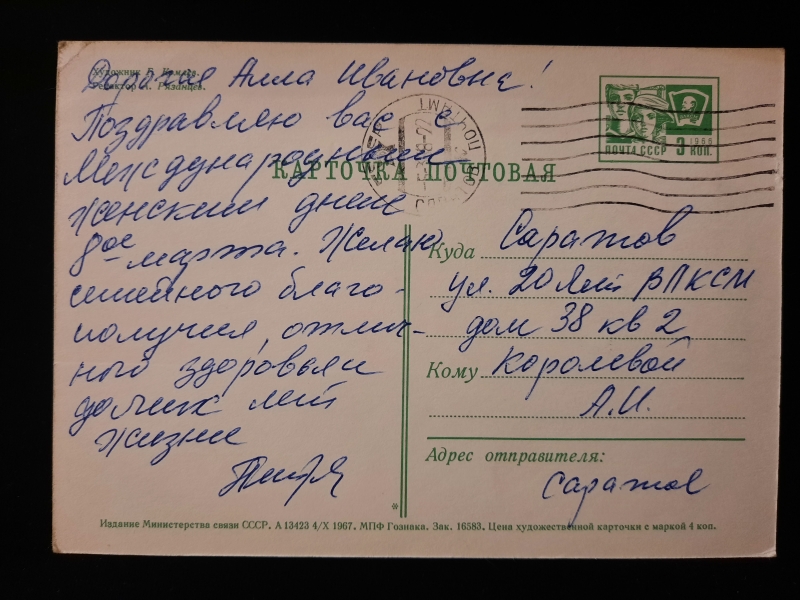 Художник Е.
Редактор А. Рязанцев.
Дорогая Алла Ивановна!
Поздравляю вас с
Международным
женским днем
8ое марта. Желаю
семейного благо-
получия, отлич-
ного здоровья и
долгих лет
жизни
ПОЧТА СССР 3 КОП.
1966
ПОЧТАМТ
КАРТОЧКА ПОЧТОВАЯ
Куда Саратов
ул. 20 Лет ВЛКСМ
дом 38 кв 2
Кому Королевой
А.И.
Адрес отправителя:
Саратов
*
Издание Министерства связи СССР. А 13423 4/X 1967. МПФ Гознака. Зак. 16583. Цена художественной карточки с маркой 4 коп.